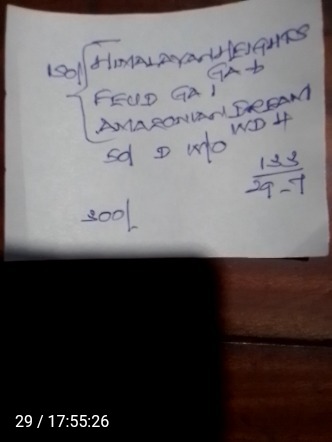 150/ { HIMALAYAN HEIGHTS
GA +
FEUD GA,
AMAZONIAN DREAM
WD #
50/ D W/O
133
29-7
300/
29 / 17:55:26